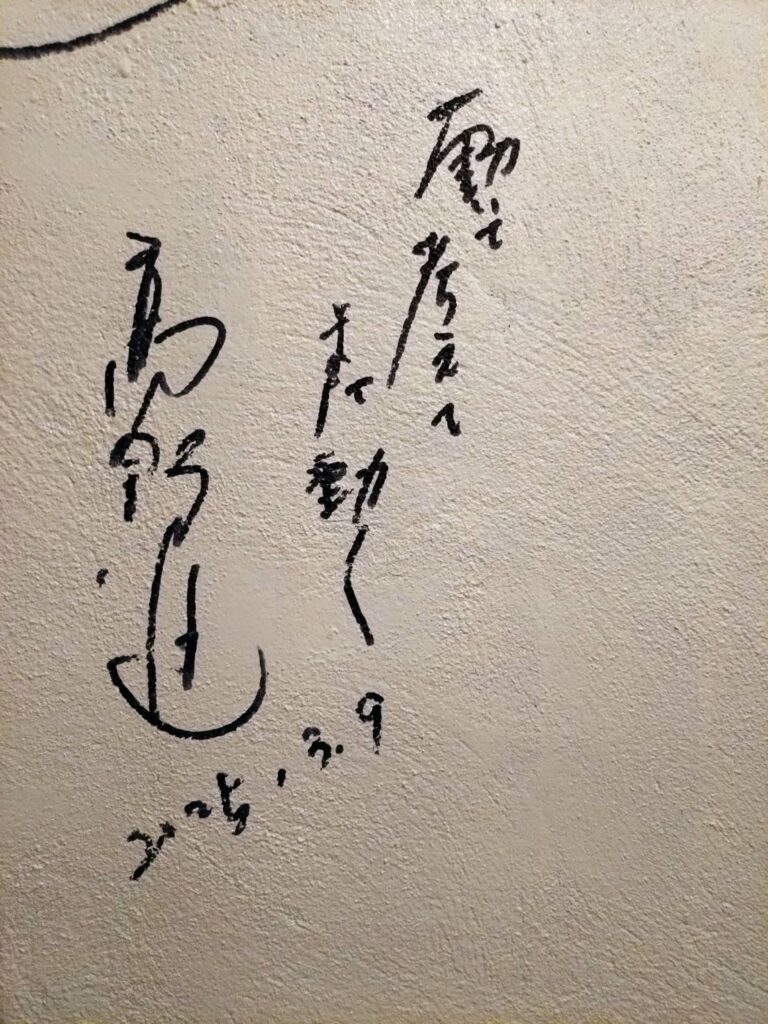 動いて考えて
また動く
高野進
2025.3.9